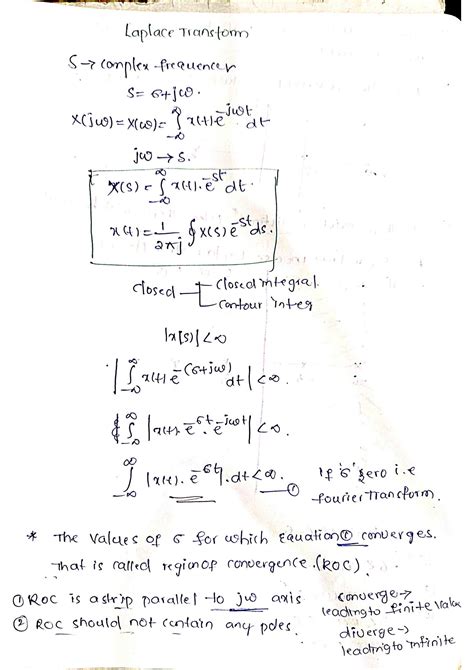 Laplace Transform
S→ complex frequencer
S= σ+jω.
X(jω)=X(ω)= ∫_{-∞}^{∞} x(t) e^{-jωt} dt
jω → s.
X(s) = ∫_{-∞}^{∞} x(t). e^{-st} dt.
x(t) = 1/2πj ∮ X(s) e^{-st} ds.
closed — closed integral.
contour integ
|x[s]| < ∞
|∫_{-∞}^{∞} x(t) e^{-(σ+jω)} dt| < ∞.
∫_{-∞}^{∞} |x(t). e^{-σt}. e^{-jωt}| < ∞.
∫_{-∞}^{∞} |x(t). e^{-σt}|. dt < ∞. — ①
If 'σ' zero i.e
fourier transform.
* The values of σ for which equation ① converges.
That is called region of convergence. (ROC).
① ROC is a strip parallel to jω axis
② ROC should not contain any poles.
converge →
leading to finite value
diverge →
leading to infinite